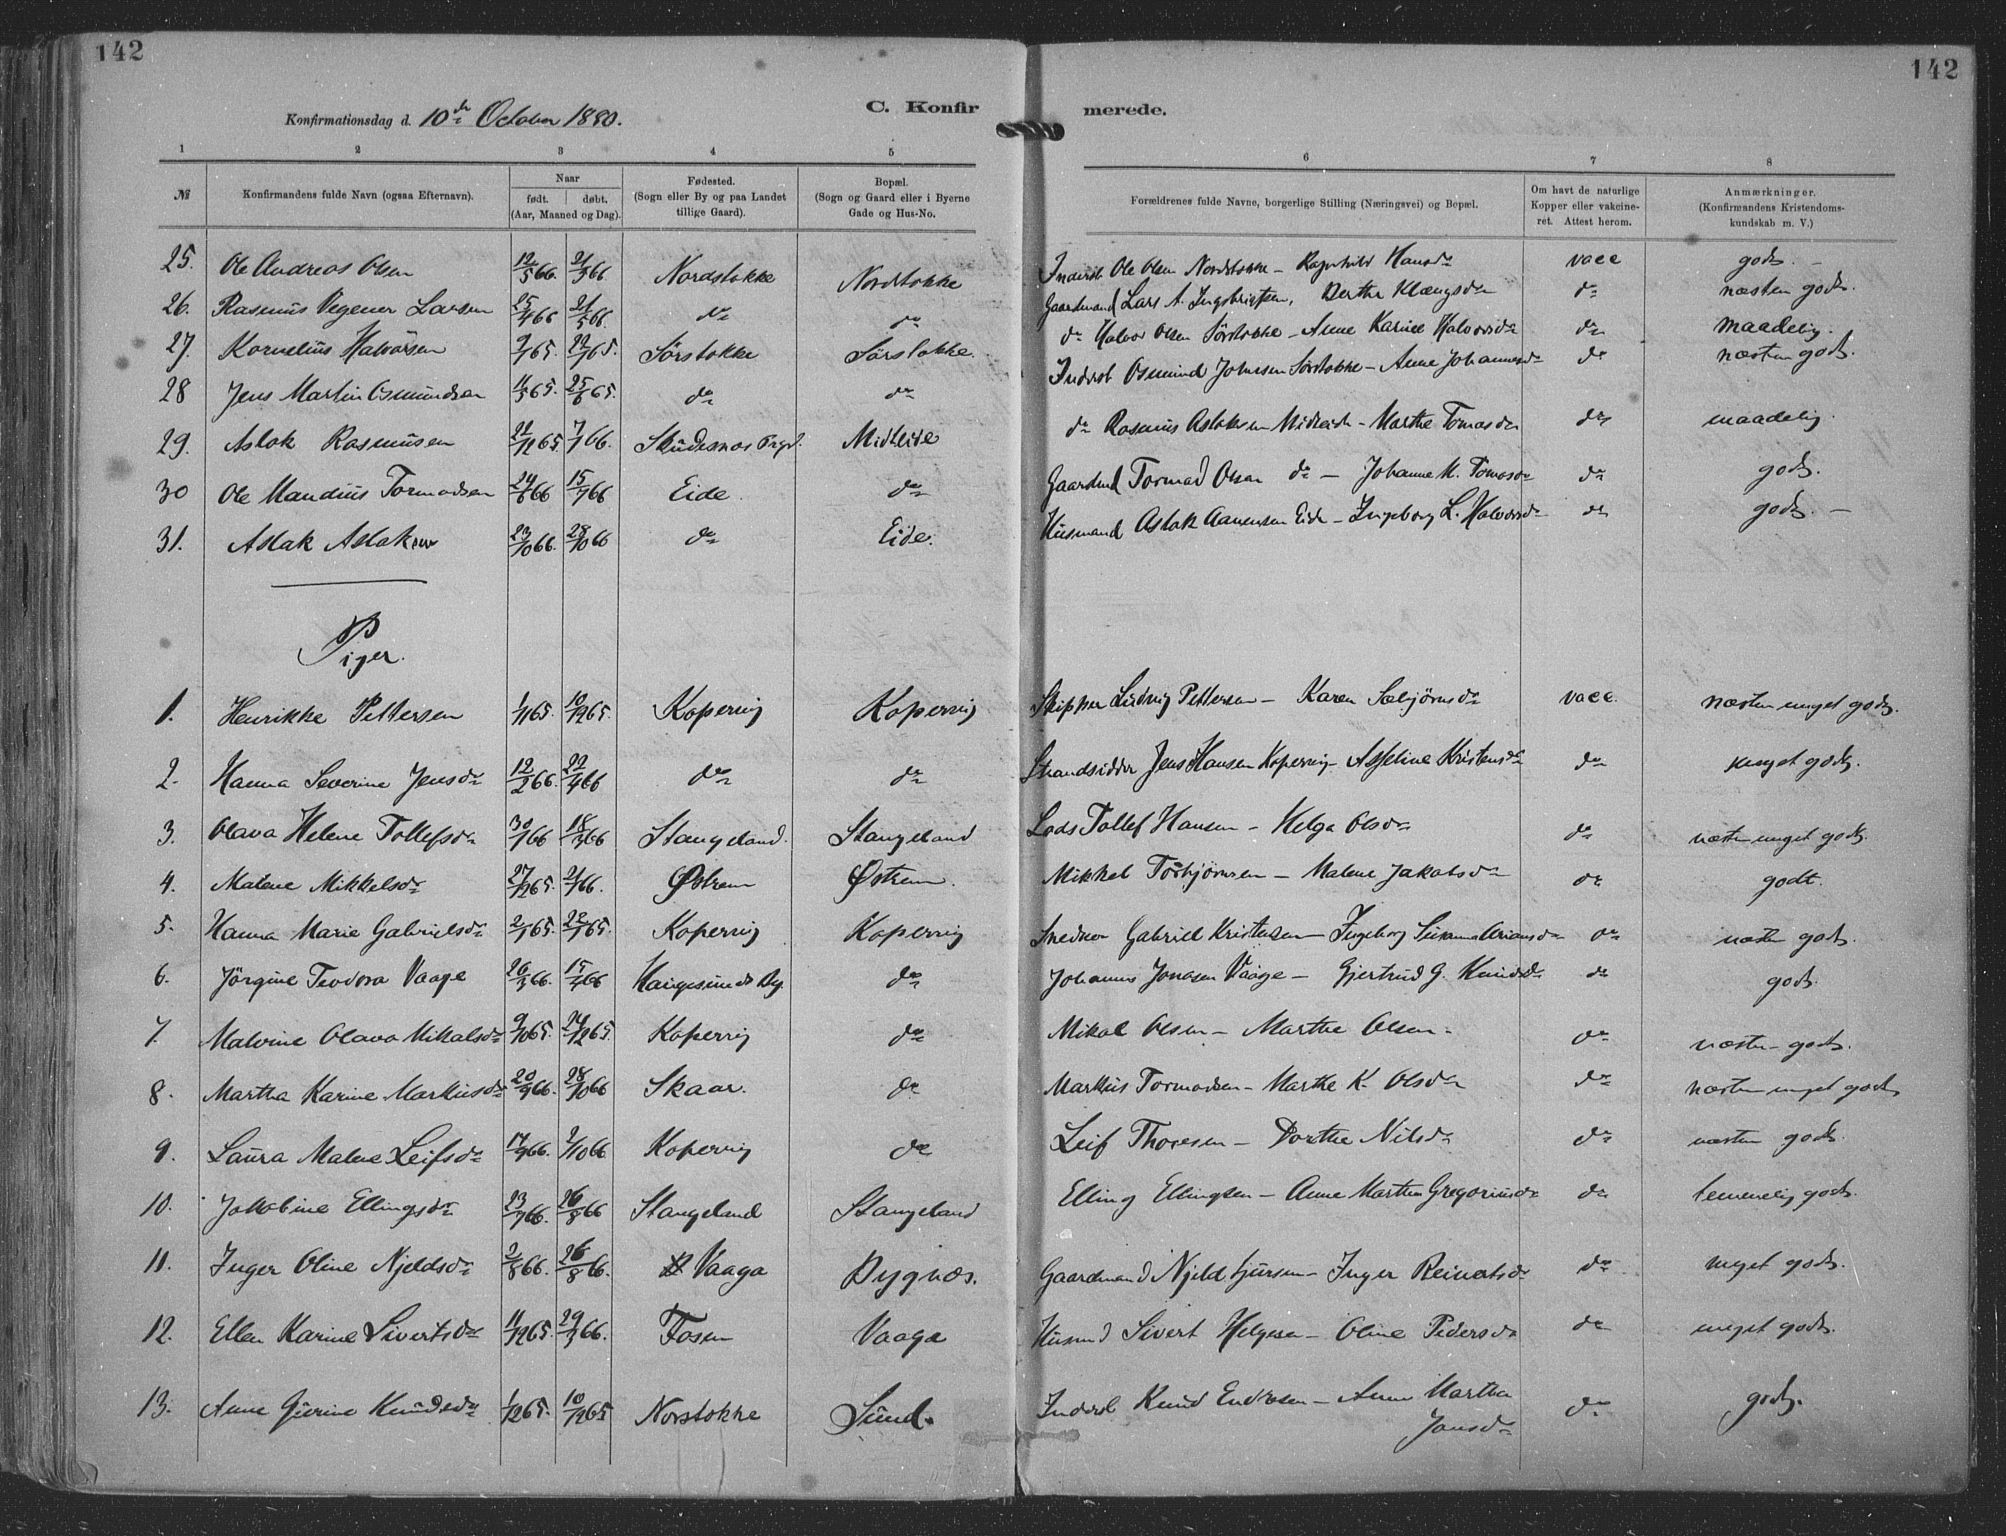 142
142
Konfirmationsdag d. 10de October 1880.
C. Konfir merede.
1 2 3 4 5 6 7 8
№ Konfirmandens fulde Navn (ogsaa Efternavn). Naar født. døbt. (Aar, Maaned og Dag). Fødested. (Sogn eller By og paa Landet tillige Gaard). Bopæl. (Sogn og Gaard eller i Byerne Gade og Hus-No. Forældrenes fulde Navne, borgerlige Stilling (Næringsvei) og Bopæl. Om havt de naturlige Kopper eller vakcineret. Attest herom. Anmærkninger. (Konfirmandens Kristendomskundskab m. V.)
25. Ole Andreas Olsen 12/5 66. 21/5 66 Nordstokke Nordstokke Inderst Ole Olsen Nordstokke – Ragnhild Hansdr vacc godt. –
26. Rasmus Vegener Larsen 25/4 66 21/5 66. dr dr Gaardmand Lars A. Ingebrietsen, Berthe Klængsdr dr næsten godt.
27. Kornelius Halvorsen 9/7 65. 22/7 65. Sørstokke Sørstokke. dr Halvor Olsen Sørstokke – Anne Karine Halvorsdr dr maadelig.
28 Jens Martin Osmundsen 11/5 65. 25/6 65. dr dr Inderst Osmund Johnsen Sørstokke – Anne Johannesdr dr næsten godt.
29. Aslak Rasmusen 22/12 65. 7/1 66. Skudesnes Prgd. Midteide dr Rasmus Aslaksen Midteide – Marthe Tomasdr dr maadelig.
30 Ole Mandius Tormodsen 24/6 66 15/7 66 Eide. dr Gaardmd Tormod Olsen dr – Johanne M. Tomasdr dr godt.
31. Aslak Aslaksen 23/10 66. 28/10 66 dr Eide. Husmand Aslak Aanensen Eide – Ingeborg L. Halvorsdr dr godt. –
Piger.
1. Henrikke Pettersen 1/11 65. 10/12 65. Kopervig Kopervig Skipper Ludvig Pettersen – Karen Sæbjørnsdr vacc. næsten meget godt.
2. Hanna Severine Jensdr 12/2 66. 22/4 66 dr dr Strandsidder Jens Hansen Kopervig – Asseline Kristensdr dr meget godt.
3. Olava Helene Tollefsdr 30/1 66 18/3 66 Stangeland. Stangeland Lods Tollef Hansen – Helga Olsdr dr næsten meget godt.
4. Malene Mikkelsdr 27/12 65. 21/1 66. Østrem Østrem. Mikkel Torbjørnsen – Malene Jakobsdr dr godt.
5. Hanna Marie Gabrielsdr 2/7 65. 22/7 65. Kopervig Kopervig Snedker Gabriel Kristensen – Ingeborg Susanna Ariansdr dr næsten godt.
6. Jörgine Teodora Vaage 26/3 66. 15/4 66 Haugesunds By. dr Johannes Jonasen Vaage – Gjertrud G. Knudsdr dr godt.
7. Malvine Olava Mikalsdr 9/10 65. 24/12 65. Kopervig dr Mikal Olsen – Marthe Olsen – dr næsten godt.
8. Martha Karine Markusdr 20/9 66. 28/10 66 Skaar. dr Markus Tormodsen – Marthe K. Olsdr dr næsten meget godt
9. Laura Malene Leifsdr 17/9 66. 7/10 66 Kopervig dr Leif Thoresen – Dorthe Nilsdr dr næsten godt.
10. Jakobine Ellingsdr 23/7 66. 26/8 66 Stangeland Stangeland Elling Ellingsen – Anne Marthe Gregoriusdr dr temmelig godt.
11. Inger Oline Njeldsdr 2/8 66. 26/8 66. Vaaga Bygnæs. Gaardmand Njeld – Inger Reinertsdr dr meget godt.
12. Ellen Karine Sivertsdr 11/12 65. 29/3 66. Fosen Vaage Husmd Sivert Helgesen – Oline Pedersdr dr meget godt.
13. Anne Gurine Knudsdr 1/12 65. 10/12 65 Norstokke Sund. Inderst Knud Endresen – Anne Martha Jansdr dr godt.